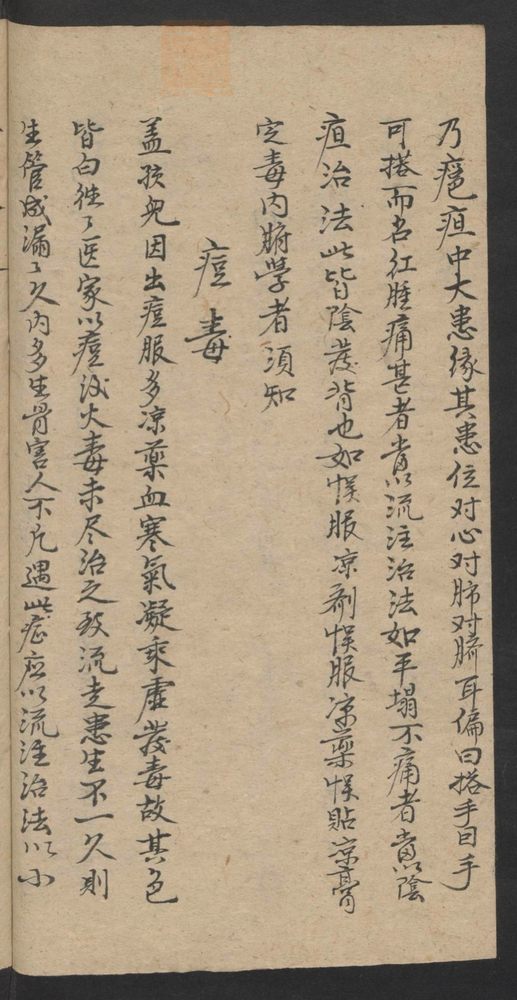 乃癧疽中大患緣其患位对心对肺对臍耳偏曰搭手因手
可搭而名红腫痛甚者當以流注治法如平塌不痛者當以陰
疽治法此皆陰發背也如悞服凉剤悞服凉藥悞貼凉膏
定毒内腑學者須知
痘毒
盖孩兒因出痘服多凉藥血寒氣凝乘虛發毒故其色
皆白徃々医家以痘後火毒未尽治之致流走患生不一久則
生管成漏々久内多生骨害人不凢遇此症应以流注治法以小